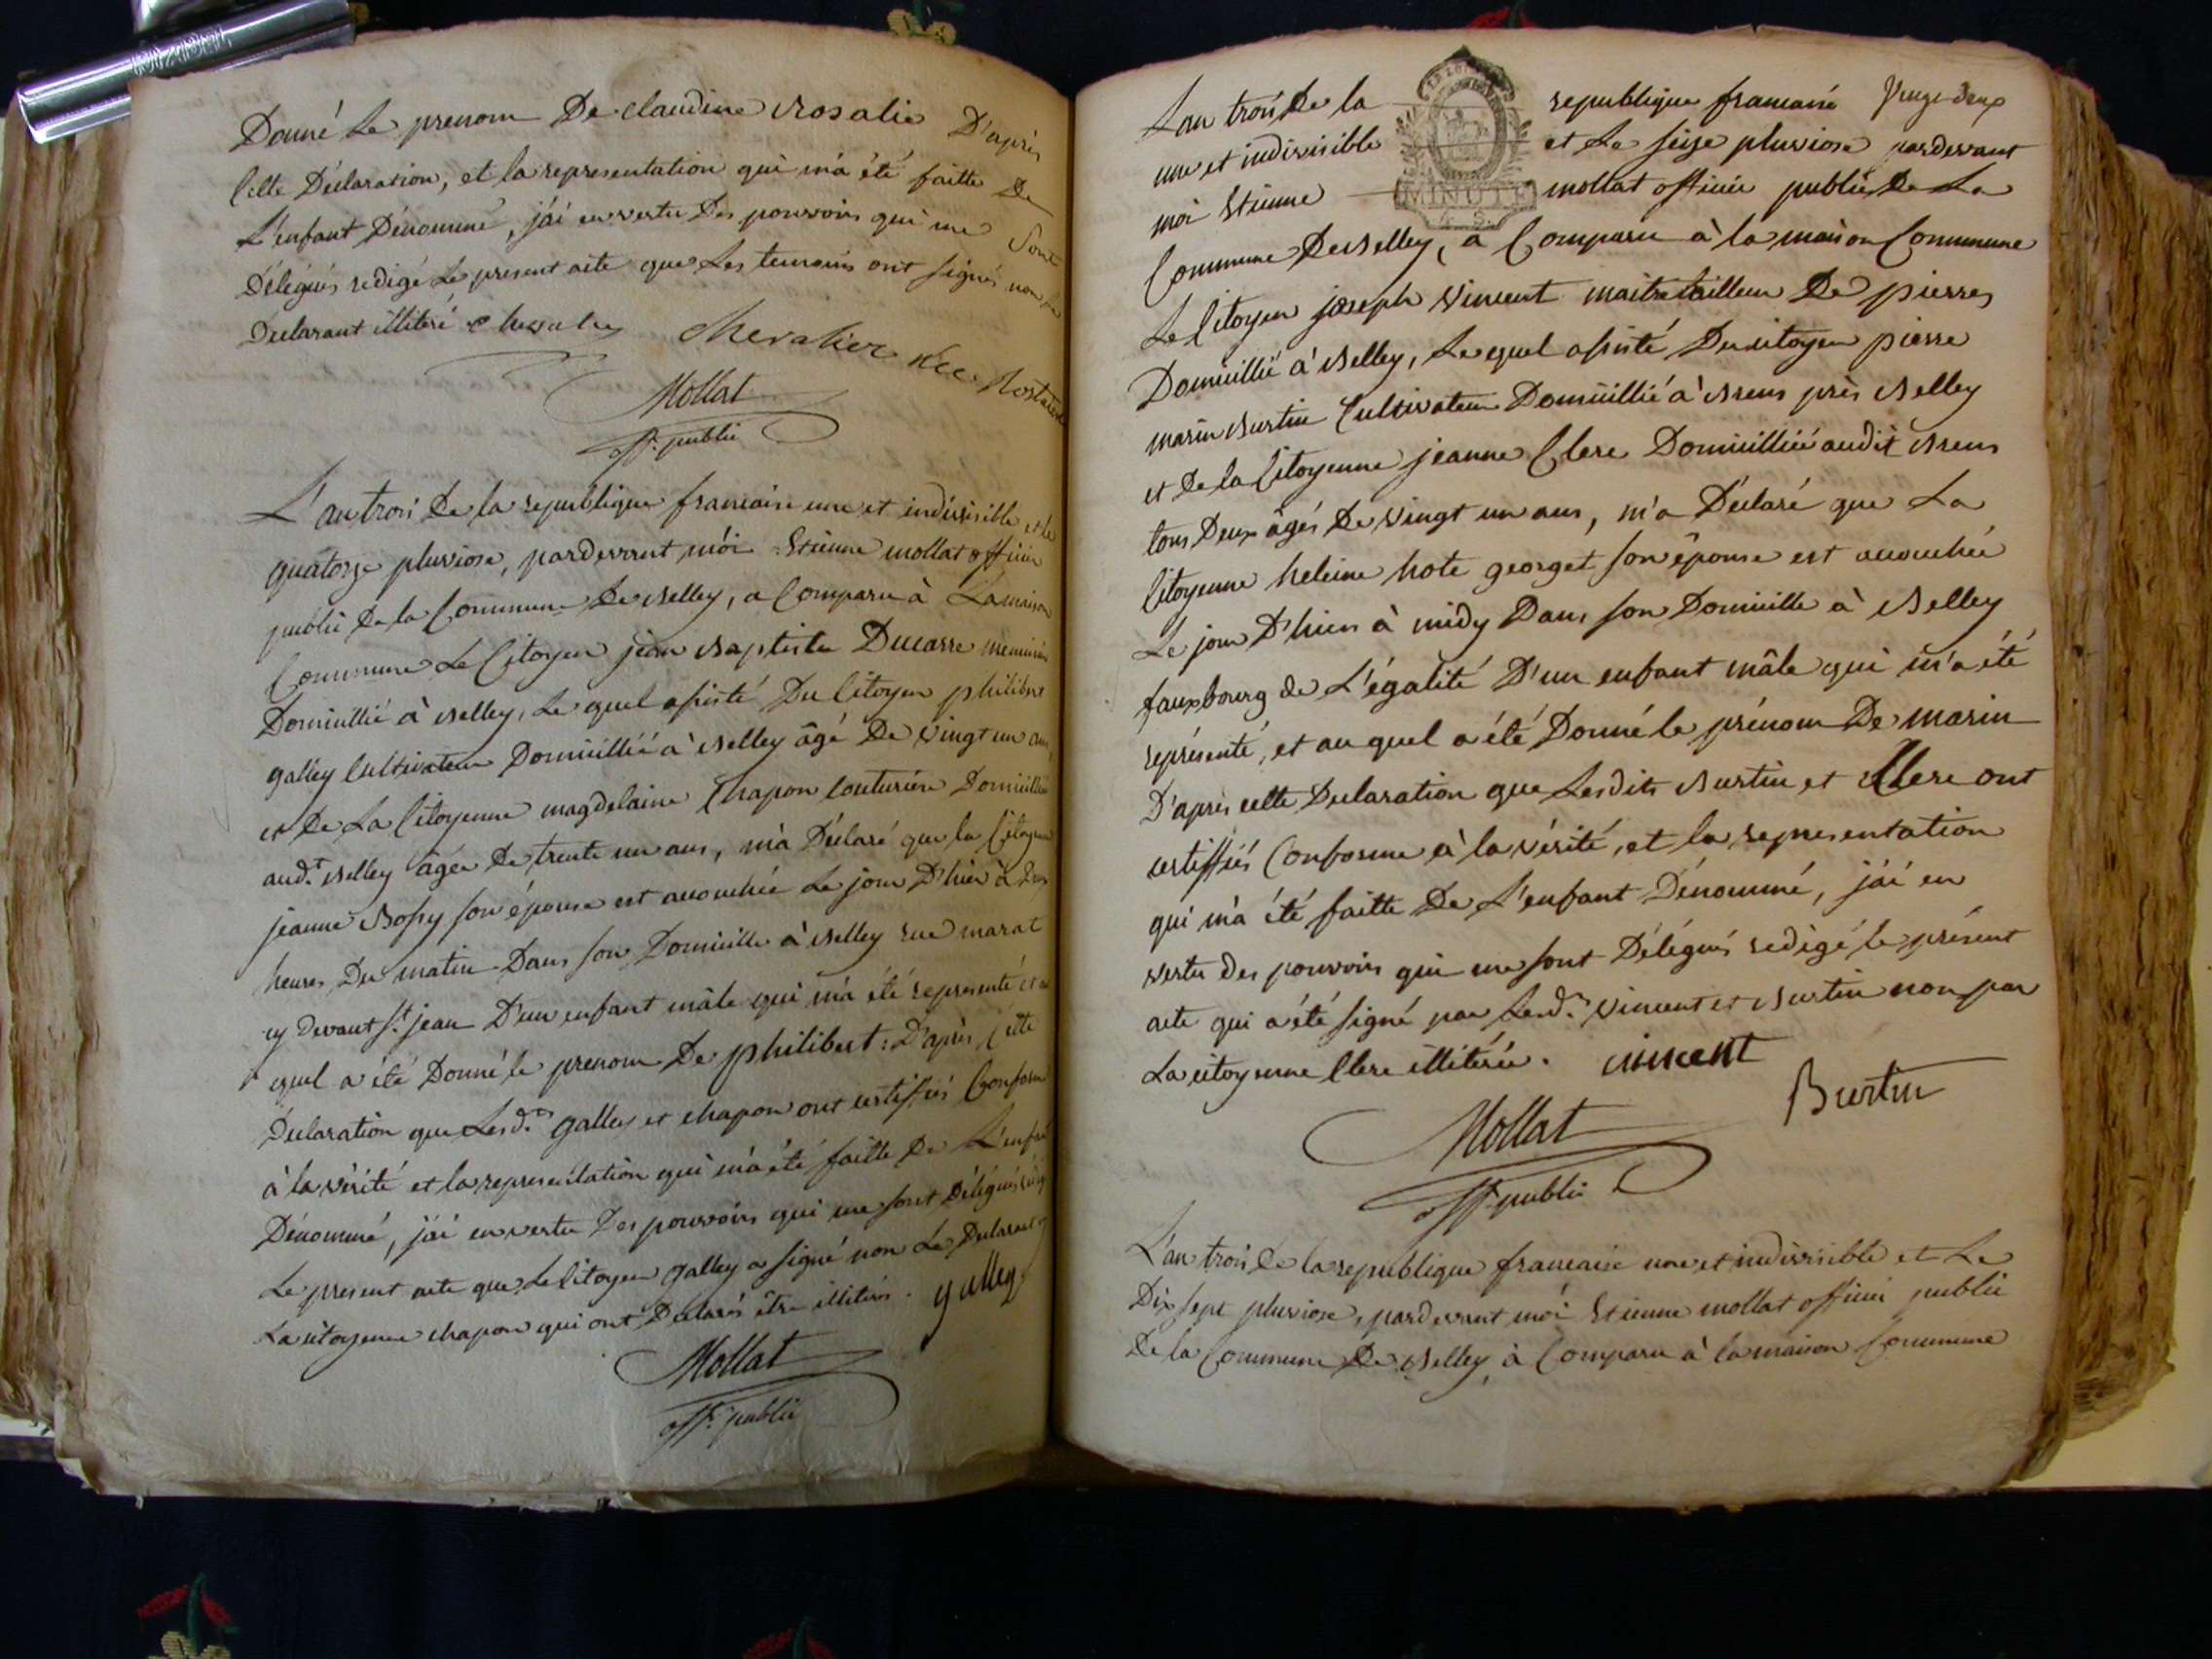 Donné le prenom De claudine Rosalie D'après
Cette Déclaration, et la representation qui m'a été faitte De
L'enfant Dénommé, j'ai en vertu Des pouvoirs qui me sont
Délégués redigé Le present acte que Les temoins ont signés non Le
Declarant illiteré chevalier Chevalier née Rostaind
Mollat
off. public
L'an trois De la republique francaise une et indivisible et le
quatorze pluviose, pardevant moi Etienne mollat officier
public De la Commune De Belley, a Comparu à La maison
Commune Le Citoyen jean Baptiste Ducarre menuisier
Domicillié à Belley, Le quel assisté Du Citoyen philibert
galley Cultivateur Domicillié à Belley âgé De vingt un ans,
et De La Citoyenne magdelaine Chapon Couturiere Domicilliée
aud.t Belley âgée De trente un ans, m'a Déclaré que la Citoyenne
jeanne Bossy son épouse est accouchée Le jour D'hier à Deux
heures Du matin Dans son Domicille à Belley rue marat
cy devant S.t jean D'un enfant mâle qui m'a été representé et au
quel a été Donné le prenom De philibert: D'après Cette
Déclaration que Lesd.ts galley et chapon ont certiffiés Conforme
à la vérité et la representation qui m'a été faitte De L'enfant
Dénommé, j'ai en vertu Des pouvoirs qui me sont Délégués rédigé
Le present acte que Le Citoyen galley a signé non Le Declarant et
La citoyenne chapon qui ont Declarés être illiterés. galley
Mollat
off. public
L'an trois De la republique francaise Vingt deux
une et indivisible et Le seize pluviose pardevant
moi Etienne mollat officier public De La
MINUTE
Commune De Belley, a Comparu à la maison Commune
Le Citoyen joseph Vincent maitre tailleur De pierres
Domicillié à Belley, Le quel assisté Du citoyen pierre
marin Burtin Cultivateur Domicillié à Brens près Belley
et De la Citoyenne jeanne Clerc Domicilliée audit Brens
tous Deux âgés De vingt un ans, m'a Déclaré que La
Citoyenne heleine hote georget son épouse est accouchée
Le jour D'hier à midy Dans son Domicille à Belley
fauxbourg de L'égalité D'un enfant mâle qui m'a été
représenté, et au quel a été Donné le prénom De marin
D'après cette Declaration que Lesdits Burtin et Clerc ont
certiffiés Conforme à la vérité, et la representation
qui m'a été faitte De L'enfant Dénommé, j'ai en
vertu des pouvoirs qui me sont Délégués redigé le présent
acte qui a été signé par Lesd.ts Vincent et Burtin non par
La citoyenne Clerc illiterée. vincent
Burtin
Mollat
off. public
L'an trois De la republique francaise une et indivisible et Le
Dix sept pluviose, pardevant moi Etienne mollat officier public
De la Commune De Belley, à Comparu à la maison Commune